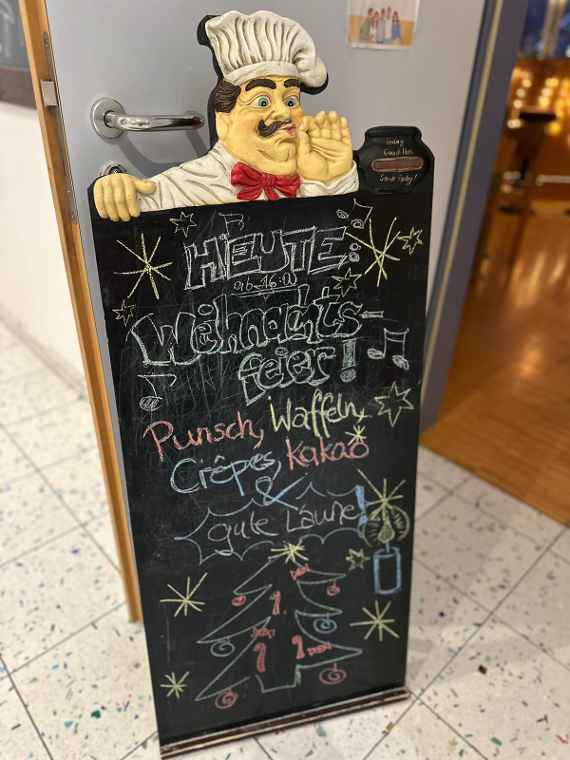 HEUTE:
ab 16:00
Weihnachts-
feier!
Punsch, Waffeln,
Crêpes, Kakao
&
gute Laune!